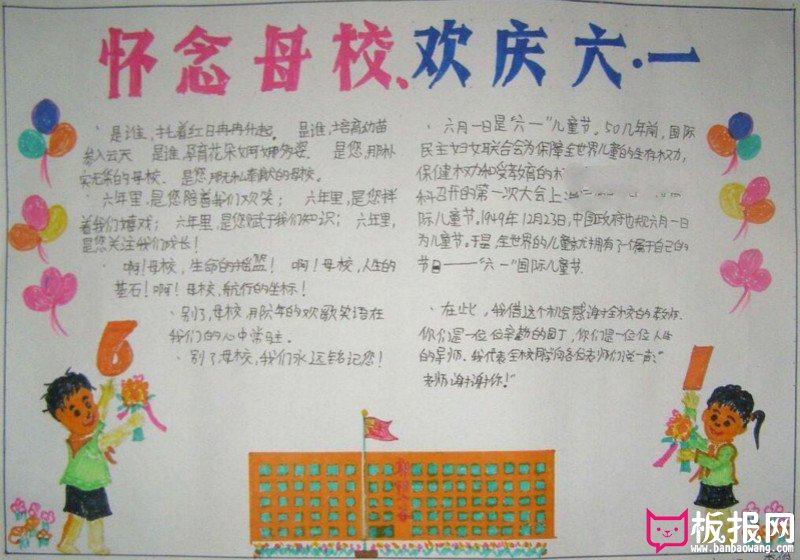 怀念母校、欢庆六·一
是谁,托着红日冉冉升起。 是谁,培育幼苗
参入云天 是谁,孕育花朵婀娜多姿。 是您,那朴
实无华的母校、是您,那无私奉献的母校。
六年里,是您陪着我们欢笑; 六年里,是您拌
着我们嬉戏; 六年里,是您赋于我们知识; 六年里,
是您关注我们成长!
啊!母校,生命的摇篮! 啊!母校,人生的
基石!啊!母校,航行的坐标!
别了,母校,用院年的欢歌笑语在
我们的心中常驻。
别了母校,我们永远铭记您!
六月一日是“六一”儿童节。50几年前,国际
民主妇女联合会为保障全世界儿童的生存权力,
保健权力和受教育的权
科召开的第一次大会上
际儿童节。1949年12月23日,中国政府也规六月一日
为儿童节。于是,全世界的儿童就拥有了个属于自己的
节日——“六一”国际儿童节.
在此,我借这个机会感谢全校的教师.
你们是一位位辛勤的园丁,你们是一位位人生
的导师。我代表全校同学向各位老师们说一声:“
老师谢谢你!”
6
1
板报网
www.banbaowang.com